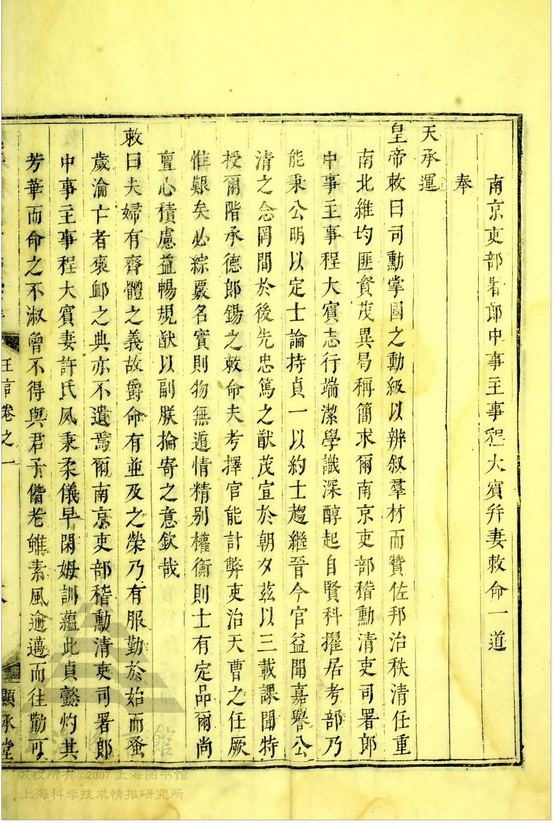 南京吏部署郎中事主事程大賓幷妻敕命一道
奉
天承運
皇帝敕曰司勳掌國之勳級以辨叙羣材而贊佐邦治秩清任重
南北維均匪資茂異曷稱簡求爾南京吏部稽勳清吏司署郎
中事主事程大賓志行端潔學識深醇起自賢科擢居考部乃
能秉公明以定士論持貞一以約士趨繼晉今官益聞嘉譽公
清之念罔間於後先忠篤之猷茂宣於朝夕茲以三載課閱特
授爾階承德郎錫之敕命夫考擇官能計弊吏治天曹之任厥
惟艱矣必綜覈名實則物無遁情精别權衡則士有定品爾尚
亶心積慮益暢規猷以副朕掄寄之意欽哉
敕曰夫婦有齊體之義故爵命有並及之榮乃有服勤於始而蚤
歲淪亡者褒卹之典亦不遺焉爾南京吏部稽勳清吏司署郎
中事主事程大賓妻許氏夙秉柔儀早閑姆訓蘊此貞懿灼其
芳華而命之不淑曾不得與君子偕老雖素風逾邁而往勤可
王言卷之一
顯承堂
版权所有©2007上海图书馆
上海科学技术情报研究所